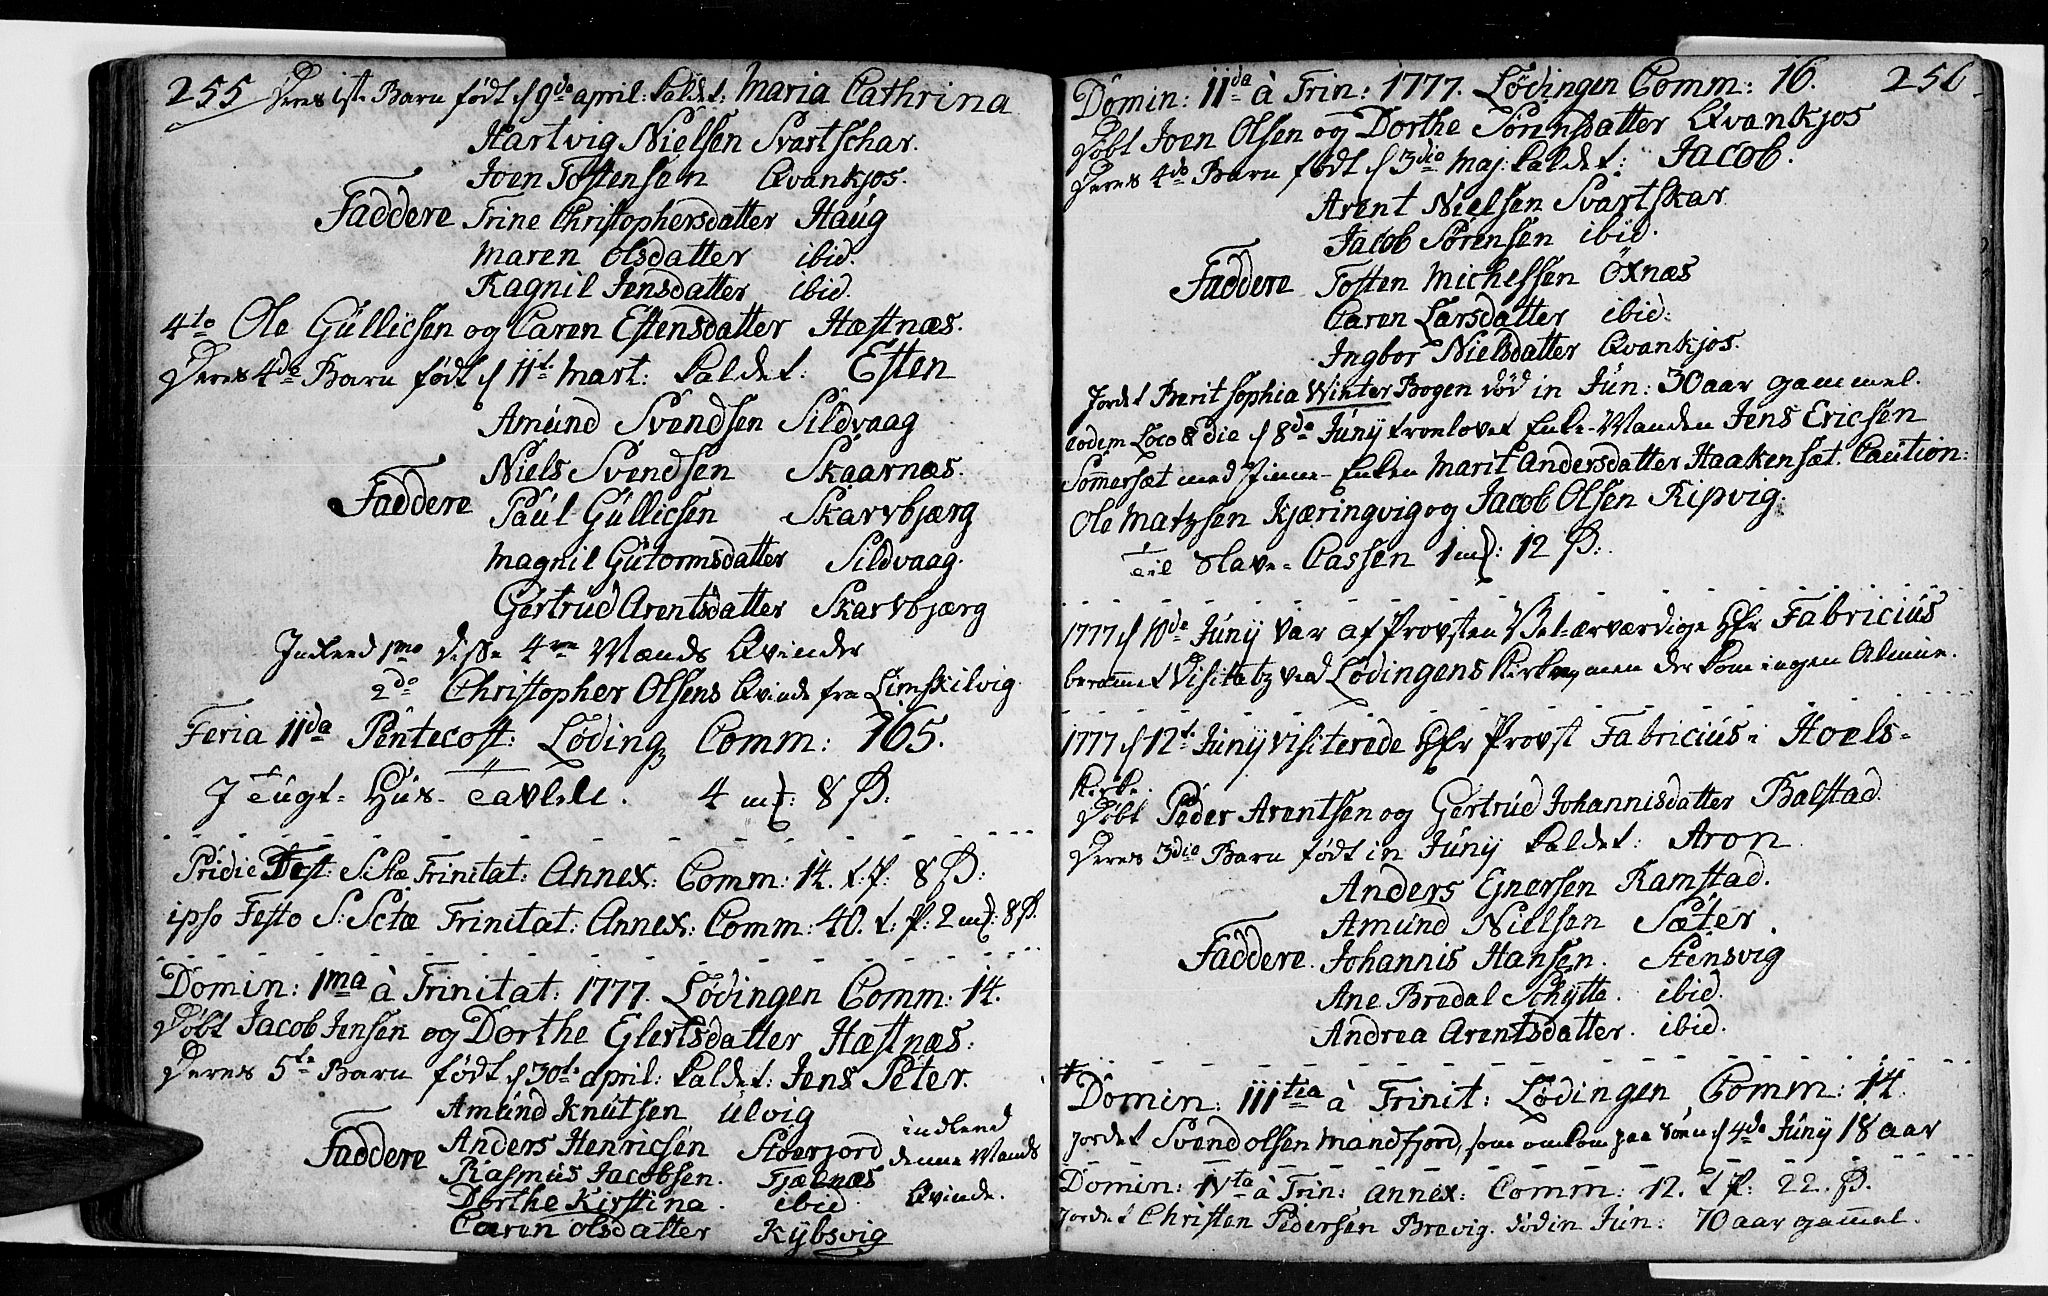 255 Deres 1ste Barn født d 9de april: kaldet: Maria Cathrina
Hartvig Nielsen Svartschar.
Joen Tostensen Qvankjos.
Faddere Trine Christophersdatter Haug
Maren Olsdatter ibid.
Ragnil Jensdatter ibid.
4to Ole Gullicsen og Caren Estensdatter Hæstnæs.
Deres 4de Barn født d 11t Mart: kaldet: Esten
Amund Svendsen Sildvaag
Niels Svendsen Skaarnæs.
Faddere Paul Gullicsen Skarvbjærg
Magnil Gutormsdatter Sildvaag.
Gertrud Arentsdatter Skarvbjærg
Indleed 1mo disse 4re Mænds Qvinder
2do Christopher Olsens Qvinde fra Limskilvig
Feria IIda Pentecost: Løding Comm: 165.
I Tugt-Huus-Tavlele. 4 mk: 8 ß:
Pridie Fest: SStæ Trinitat: Annex: Comm: 14. t. p: 8 ß:
ipso Festo S: Sctæ Trinitat: Annex: Comm: 40. t: p: 2 mk: 8 ß.
Domin: 1ma à Trinitat: 1777. Lødingen Comm: 14.
Døbt Jacob Jensen og Dorthe Elertsdatter Hæstnæs:
Deres 5te Barn født d 30te april: kaldet: Jens Peter.
Amund Knutsen Ulvig
Faddere Anders Henricsen Stoerjord
Rasmus Jacobsen. Fjælnæs
Dorthe Kirstina. ibid
Caren Olsdatter Kybsvig
indleed
denne Mands
Qvinde.
Domin: IIda à Trin: 1777. Lødingen Comm: 16. 256
Døbt Joen Olsen og Dorthe Sørensdatter Qvankjos
Deres 4de Barn født d 3die Maj: kaldet: Jacob.
Arent Nielsen Svartskar
Jacob Sørensen ibid.
Faddere Tosten Michelsen Öxnæs
Caren Larsdatter ibid:
Ingbor Nielsdatter Qvankjos.
Jordet Berit Sophia Winter Bogen død in Jun: 30 aar gammel.
eodem Loco & die d 8de Juny troelovet Enke-Manden Jens Ericsen
Somersæt med Pinne-Enken Marit Andersdatter Haakensæt. Caution:
Ole Matzsen Kjæringvig og Jacob Olsen Ripvig.
Til Slave-Cassen 1 mk: 12 ß:
1777 d 10de Juny var af Provsten Vel-ærværdige Hr Fabricius
berammet Visitatz ved Lødingens Kirke, men der kom ingen Almue.
1777 d 12t Juny visiterede Hr Provst Fabricius i Hoels-
Kirke.
Døbt Peder Arentsen og Gertrud Johannisdatter Balstad.
Deres 3die Barn født in Juny kaldet: Aron
Anders Ejnersen Ramstad.
Amund Nielsen Sæter.
Faddere. Johannis Hansen. Stensvig
Ane Bredal Schytte. ibid.
Andrea Arentsdatter. ibid.
Domin: IIItia à Trinit: Lødingen Comm: 14.
Jordet Svend Olsen Mandfjord, som omkom paa Søen d 4de Juny 18 aar
Domin: IVta à Trin: Annex: Comm: 12. t p: 22. ß.
Jordet Christen Pedersen Brevig. død in Jun: 70 aar gammel.